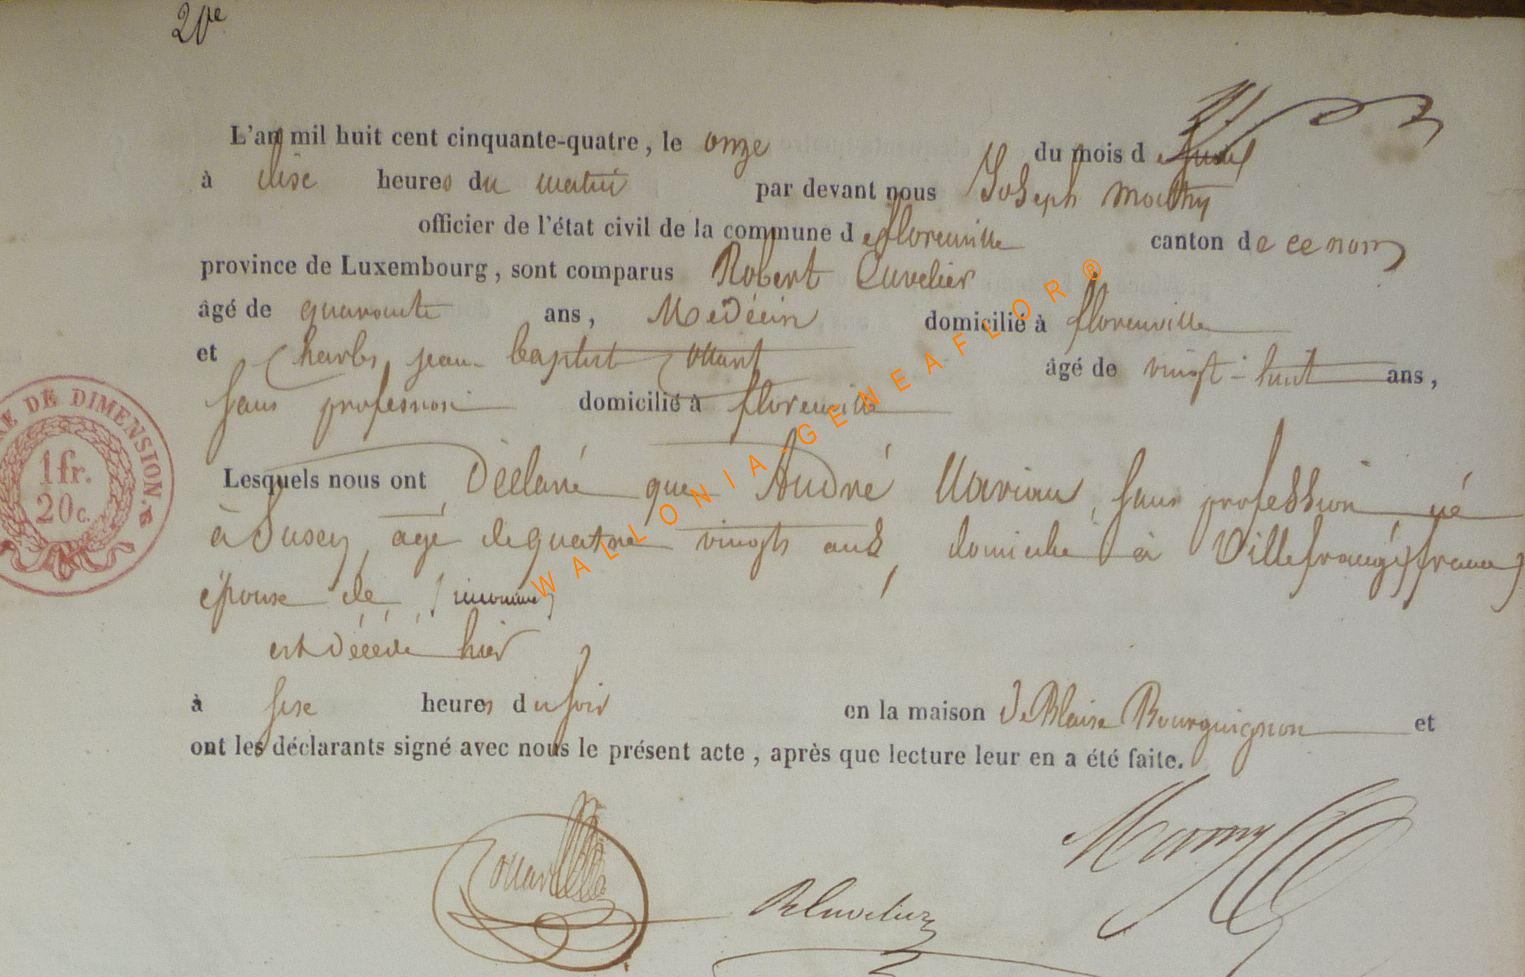 20e
L'an mil huit cent cinquante-quatre, le onze du mois d
à dise heures du matin par devant nous Joseph
officier de l'état civil de la commune de florenville canton de ce nom
province de Luxembourg, sont comparus Robert Cuvelier
âgé de quarante ans, Médécin domicilié à florenville
et Charles jean baptist âgé de vingt-huit ans,
sans profession domicilié à florenville
RE DE DIMENSION.
1 fr.
20c.
Lesquels nous ont Déclaré que André Marian, sans profession né
à Susey, agé de quatre vingts ans, domicilié à Villefrangé (france)
épouse de
est décédé hier
à sise heures du soir en la maison De Blaise Bourguignon et
ont les déclarants signé avec nous le présent acte, après que lecture leur en a été faite.
RCuvelier
WALLONIA-GENEAFLOR®